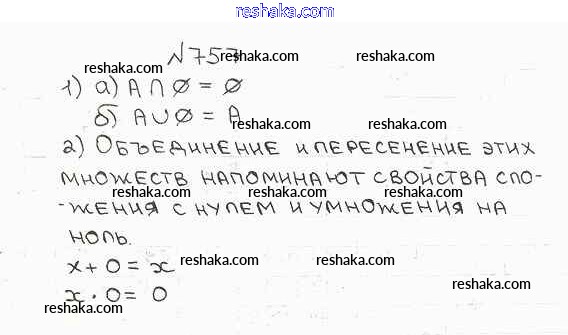 reshaka.com
№ 757
reshaka.com
reshaka.com
1) а) A ∩ ∅ = ∅
reshaka.com
б) A ∪ ∅ = A
reshaka.com
2) Объединение и пересенение этих
reshaka.com
reshaka.com
множеств напоминают свойства сло-
reshaka.com
reshaka.com
-жения с нулем и умножения на
reshaka.com
ноль.
x + 0 = x
reshaka.com
reshaka.com
x · 0 = 0
reshaka.com
reshaka.com